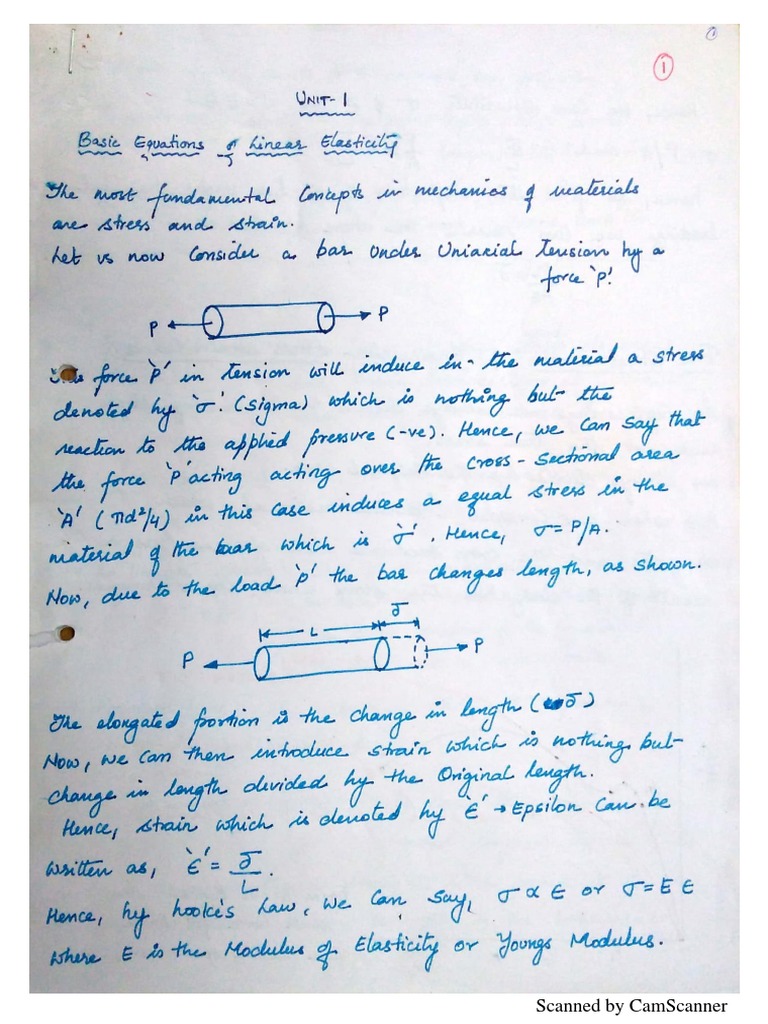 1
UNIT-1
Basic Equations of Linear Elasticity
The most fundamental Concepts in mechanics of materials
are stress and strain.
Let us now Consider a bar under Uniaxial tension by a
force 'P'.
P P
This force 'P' in tension will induce in the material a stress
denoted by 'σ'. (Sigma) which is nothing but the
reaction to the applied pressure (-ve). Hence, we can say that
the force 'P' acting acting over the cross-sectional area
'A' (πd²/4) in this case induces a equal stress in the
material of the bar which is 'σ'. Hence, σ = P/A.
Now, due to the load 'P' the bar changes length, as shown.
L δ
P P
The elongated portion is the change in length (δ)
Now, we can then introduce strain which is nothing but
change in length divided by the Original length.
Hence, strain which is denoted by 'ϵ' → Epsilon can be
written as, 'ϵ' = δ/L.
Hence, by hooke's Law, we can say, σ ∝ ϵ or σ = E ϵ
where E is the Modulus of Elasticity or Youngs Modulus.
Scanned by CamScanner